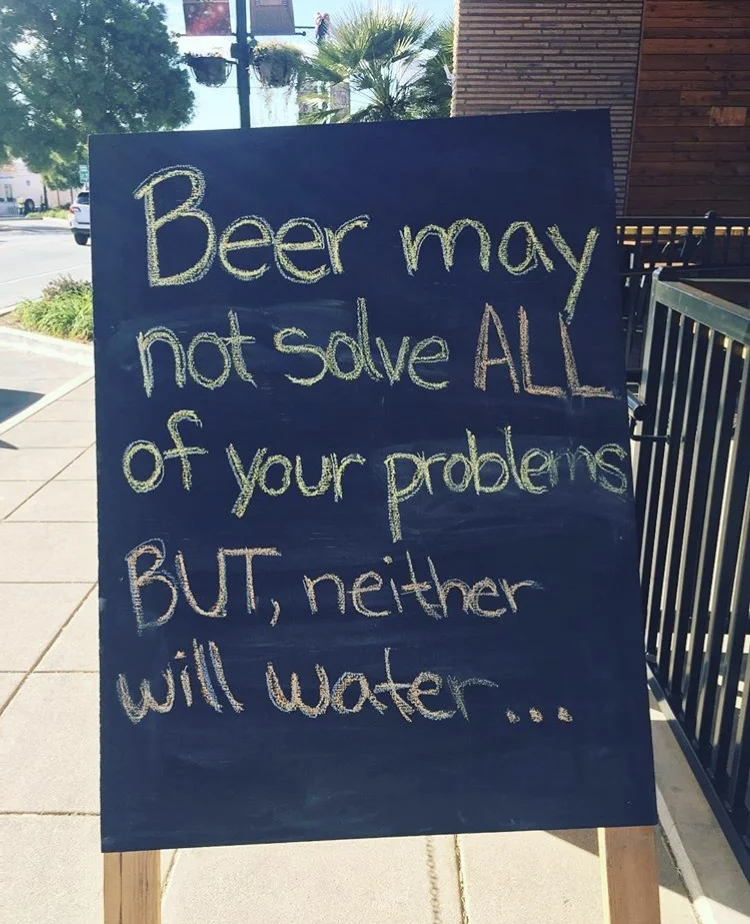 Beer may
not solve ALL
of your problems
BUT, neither
will water...